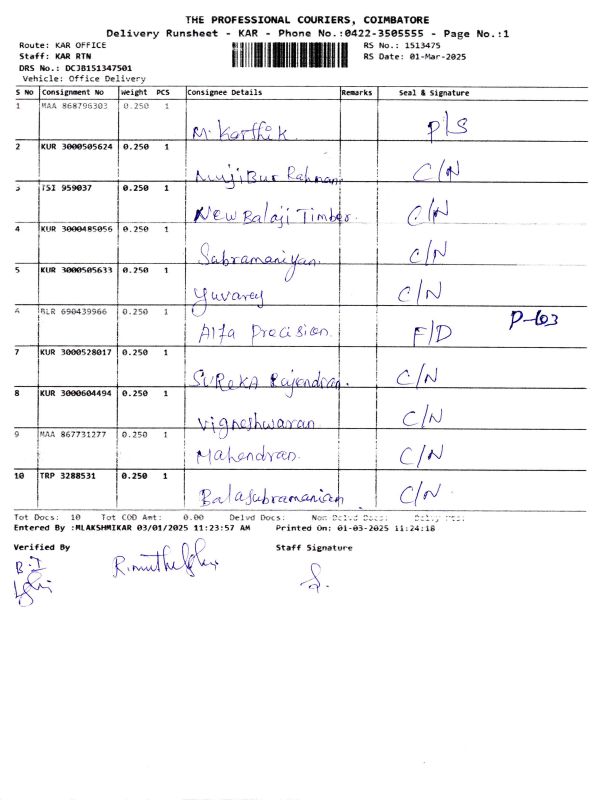 THE PROFESSIONAL COURIERS, COIMBATORE
Delivery Runsheet - KAR - Phone No.:0422-3505555 - Page No.:1
Route: KAR OFFICE RS No.: 1513475
Staff: KAR RTN RS Date: 01-Mar-2025
DRS No.: DCJB151347501
Vehicle: Office Delivery
S No Consignment No Weight PCS Consignee Details Remarks Seal & Signature
1 MAA 868796303 0.250 1 M. Karthik P/S
2 KUR 3000505624 0.250 1 MujiBur Rahman. C/N
3 TSI 959037 0.250 1 NEW Balaji Timber. C/N
4 KUR 3000485056 0.250 1 Subramaniyan. C/N
5 KUR 3000505633 0.250 1 Yuvaraj C/N
6 BLR 690439966 0.250 1 Alfa Precision. F/D P-603
7 KUR 3000528017 0.250 1 SUReKA Rajendran. C/N
8 KUR 3000604494 0.250 1 Vigneshwaran C/N
9 MAA 867731277 0.250 1 Mahendran. C/N
10 TRP 3288531 0.250 1 Balasubramanian C/N.
Tot Docs: 10 Tot COD Amt: 0.00 Delvd Docs: Non Delvd Docs:
Entered By :MLAKSHMIKAR 03/01/2025 11:23:57 AM Printed On: 01-03-2025 11:24:18
Verified By Staff Signature